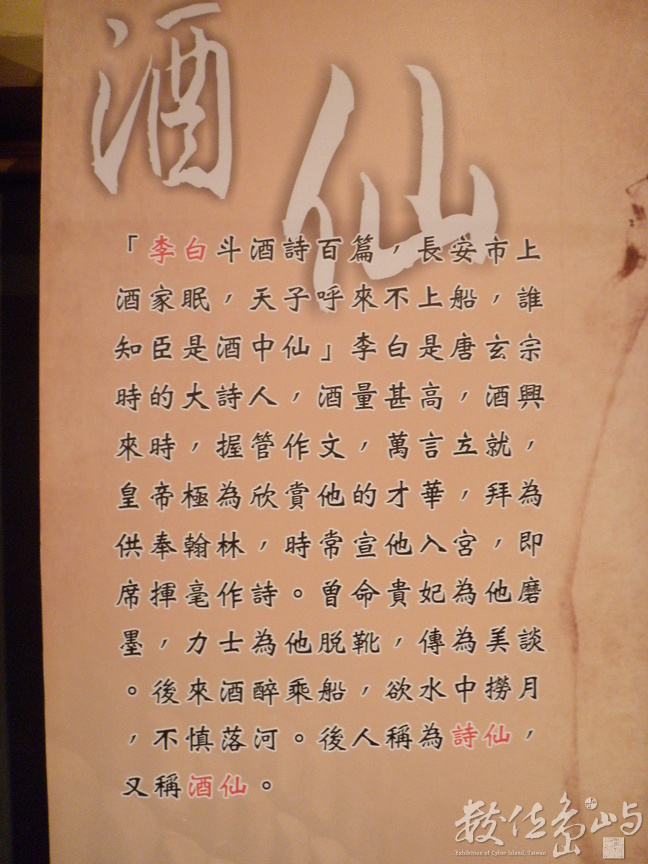 酒仙
「李白斗酒詩百篇，長安市上
酒家眠，天子呼來不上船，誰
知臣是酒中仙」李白是唐玄宗
時的大詩人，酒量甚高，酒興
來時，握管作文，萬言立就，
皇帝極為欣賞他的才華，拜為
供奉翰林，時常宣他入宮，即
席揮毫作詩。曾命貴妃為他磨
墨，力士為他脫靴，傳為美談
。後來酒醉乘船，欲水中撈月
，不慎落河。後人稱為詩仙，
又稱酒仙。
數位島嶼
Exhibition of Cyber Island, Taiwan